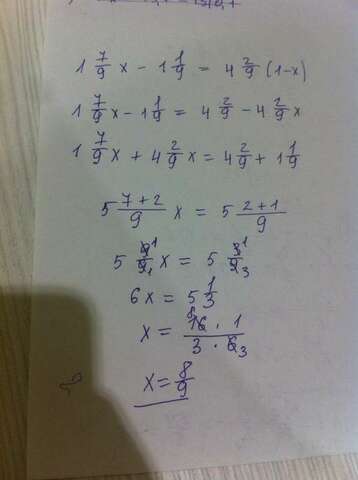 1 7/9 x - 1 1/9 = 4 2/9 (1-x)
1 7/9 x - 1 1/9 = 4 2/9 - 4 2/9 x
1 7/9 x + 4 2/9 x = 4 2/9 + 1 1/9
5 7+2/9 x = 5 2+1/9
5 9 1/9 1 x = 5 3 1/9 3
6x = 5 1/3
x = 8 16 · 1/3 · 6 3
x = 8/9